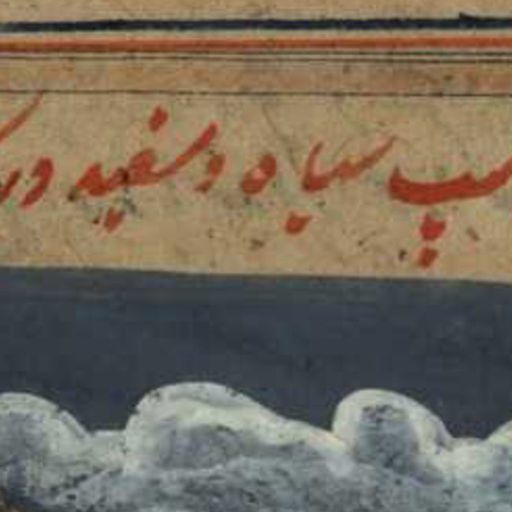 سپ سیاه و سفید در